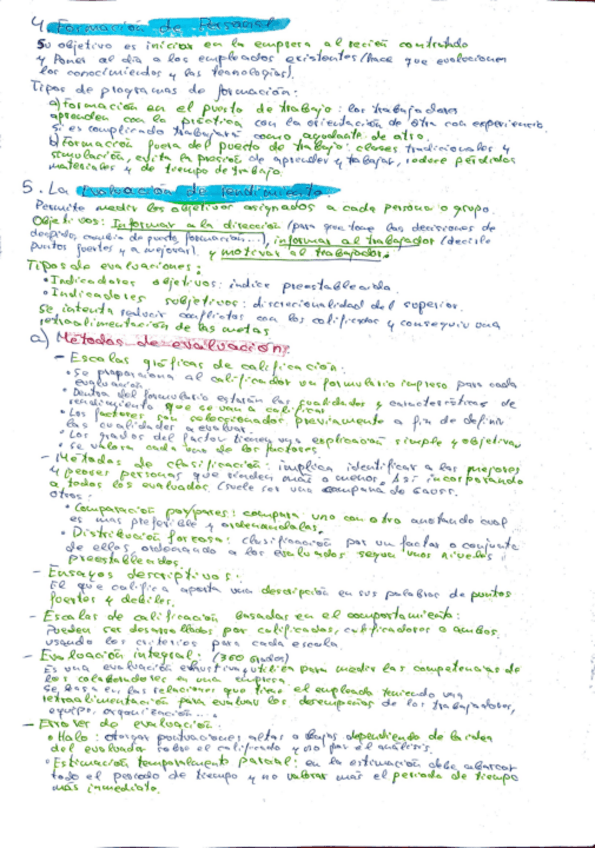 4. Formación de Personal
Su objetivo es iniciar en la empresa al recién contratado
y poner al día a los empleados existentes (hace que evolucionen
los conocimientos y las tecnologías).
Tipos de programas de formación:
a) Formación en el puesto de trabajo: los trabajadores
aprenden con la práctica con la orientación de otra con experiencia.
Si es complicado trabajará como ayudante de otro.
b) Formación fuera del puesto de trabajo: clases tradicionales y
simulación, evita la presión de aprender y trabajar, reduce pérdidas
materiales y de tiempo de trabajo.
5. La Evaluación de rendimiento
Permite medir los objetivos asignados a cada persona o grupo.
Objetivos: Informar a la dirección (para que tome las decisiones de
despido, cambio de puesto, formación...), informar al trabajador (decirle
puntos fuertes y a mejorar) y motivar al trabajador.
Tipos de evaluaciones:
• Indicadores objetivos: índice preestablecida.
• Indicadores subjetivos: discrecionalidad del superior.
Se intenta reducir conflictos con los calificados y conseguir una
retroalimentación de las metas
a) Métodos de evaluación:
- Escalas gráficas de calificación:
• Se proporciona al calificador un formulario impreso para cada
evaluación.
• Dentro del formulario estarán las cualidades y características de
rendimiento que se van a calificar
• Los factores son seleccionados previamente a fin de definir
las cualidades a evaluar.
• Los grados del factor tienen una explicación simple y objetiva
• Se valora cada uno de los factores
- Métodos de clasificación: implica identificar a las mejores
y peores personas que rinden más o menos. Así incorporando
a todos los evaluados (suele ser una campana de Gauss.
Otros:
• Comparación por pares: compara uno con otro anotando cual
es más preferible y ordenandolas.
• Distribución forzosa: clasificación por un factor o conjunto
de ellos, ordenando a los evaluados según unos niveles
preestablecidos.
- Ensayos descriptivos:
El que califica aporta una descripción en sus palabras de puntos
fuertes y débiles.
- Escalas de calificación basadas en el comportamiento:
Pueden ser desarrolladas por calificados, calificadores o ambos
usando los criterios para cada escala.
- Evaluación integral: (360 grados)
Es una evaluación exhaustiva, utiliza para medir las competencias de
los colaboradores en una empresa.
Se basa en las relaciones que tiene el empleado teniendo una
retroalimentación para evaluar los desempeños de los trabajadores,
equipo, organización...
- Error de evaluación:
• Halo: otorgar puntuaciones altas o bajas dependiendo de la idea
del evaluador sobre el calificado y no por el análisis.
• Estimación temporalmente parcial: en la estimación debe abarcar
todo el periodo de tiempo y no valorar más el periodo de tiempo
más inmediato.